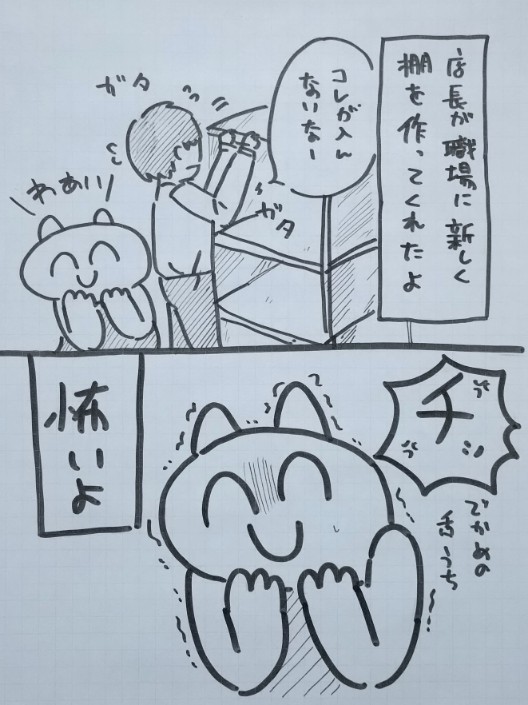 店長が職場に新しく
棚を作ってくれたよ
コレが入ん
ないなー
ガタ
ガタ
わあい
チッ
でかめの
舌うち
怖いよ